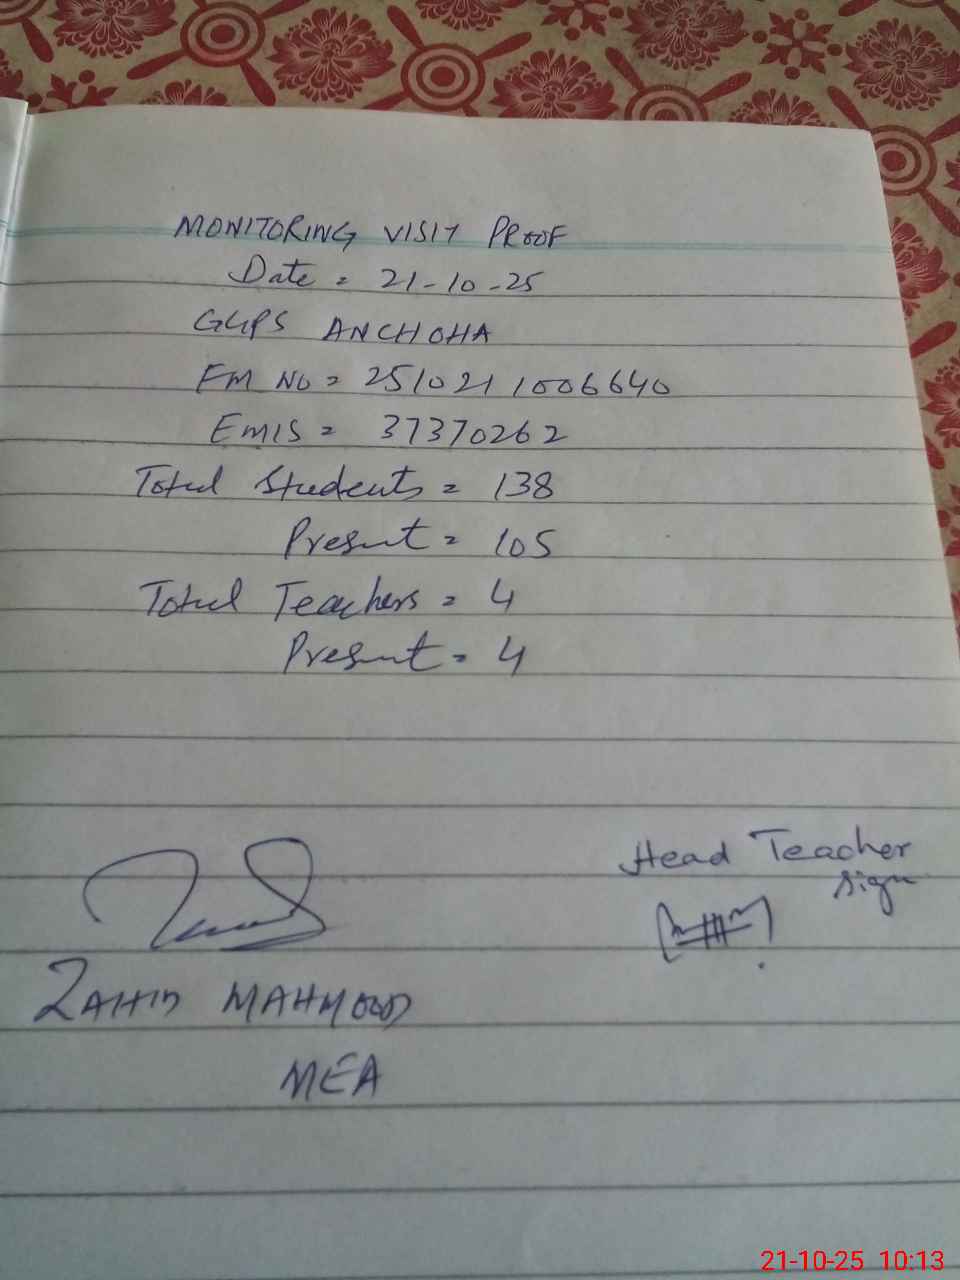 MONITORING VISIT PROOF
Date = 21-10-25
GGPS ANCHOHA
FM NO = 2510211006640
EMIS = 37370262
Total Students = 138
Present = 105
Total Teachers = 4
Present = 4
Head Teacher
Sign
ZAHID MAHMOOD
MEA
21-10-25 10:13